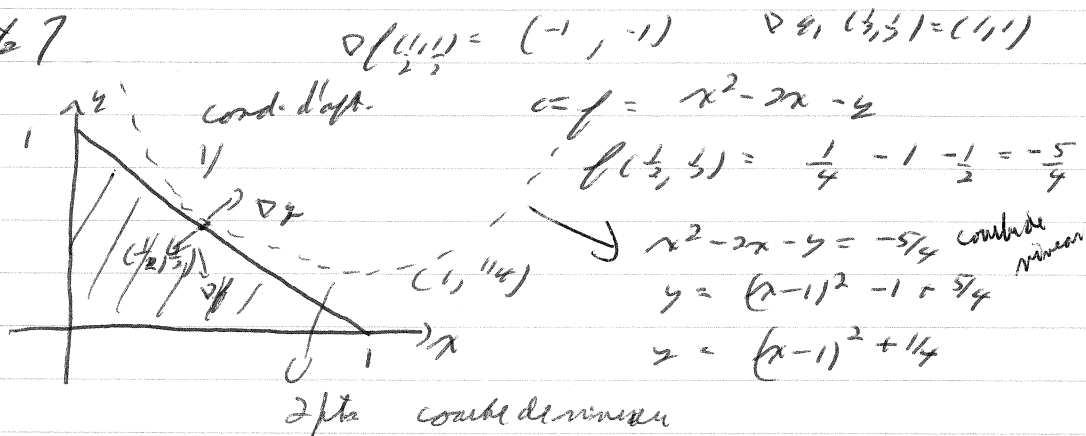 ∇f(1/2, 1/2) = (-1, -1) ∇g₁(1/2, 1/2) = (1, 1)
y
cond. d'opt. c = f = x² - 2x - y
1 1/
f(1/2, 1/2) = 1/4 - 1 - 1/2 = -5/4
∇g
x² - 2x - y = -5/4 courbe de niveau
(1/2, 1/2) (1, 1/4)
∇f y = (x-1)² - 1 + 5/4
x
1 y = (x-1)² + 1/4
2 pts courbe de niveau